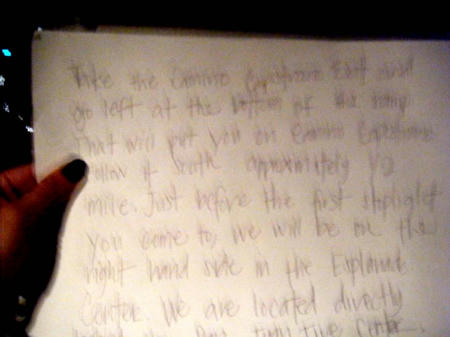 Take the Camino Capistrano Exit and
go left at the bottom of the ramp.
That will put you on Camino Capistrano
Follow it south approximately 1/2
mile. Just before the first stoplight
you come to, we will be on the
right hand side in the Esplanade
Center. We are located directly
behind the Day Tire Center.